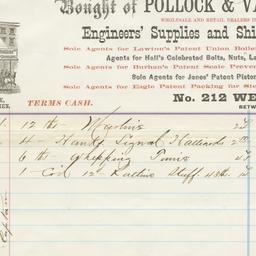 Bought of POLLOCK & V
WHOLESALE AND RETAIL DEALERS IN
Engineers' Supplies and Shi
Sole Agents for Lawine's Patent Union Boiler
Agents for Hall's Celebrated Bolts, Nuts, La
Sole Agents for Burhan's Patent Scale Preven
Sole Agents for Jones' Patent Piston
Sole Agents for Eagle Patent Packing for Ste
TERMS CASH.
No. 212 WE
BETW
12 lbs Marline
4 Hanks Signal Halliards
6 lbs Whipping Twine
1 Coil 12 Ratline Stuff